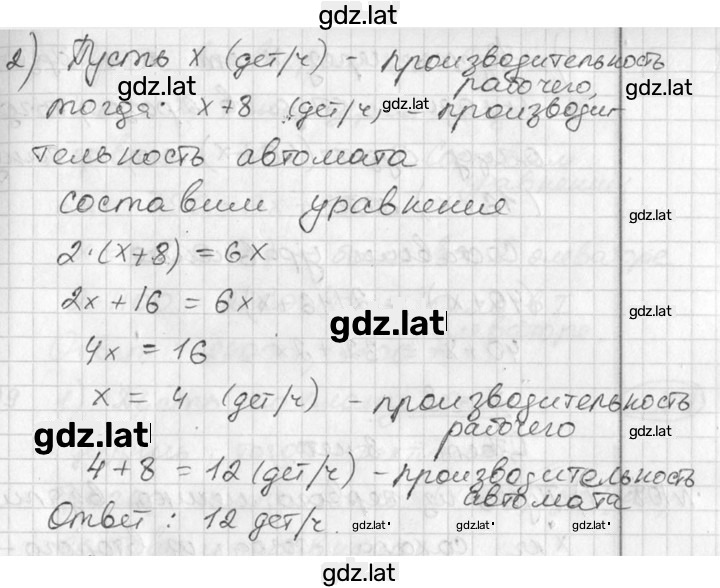 gdz.lat
2) Пусть x (дет/ч) - производительность
рабочего,
gdz.lat gdz.lat
тогда: x+8 (дет/ч) - производи-
gdz.lat
тельность автомата
составим уравнение
gdz.lat
2·(x+8) = 6x
2x + 16 = 6x
gdz.lat
gdz.lat
4x = 16
x = 4 (дет/ч) - производительность
рабочего
gdz.lat gdz.lat
4+8 = 12 (дет/ч) - производительность
автомата
Ответ: 12 дет/ч.
gdz.lat gdz.lat gdz.lat
gdz.lat